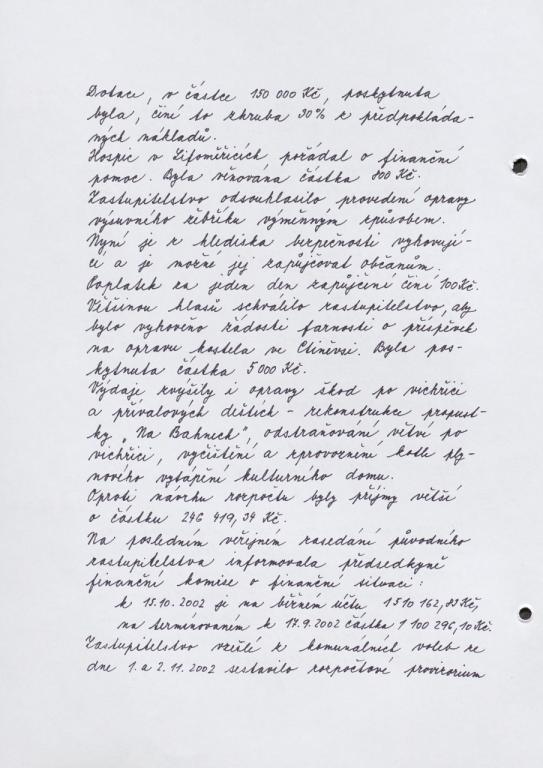 Dotace, v částce 150 000 Kč, poskytnuta
byla, činí to zhruba 30% z předpokláda-
ných nákladů.
Hospic v Litoměřicích požádal o finanční
pomoc. Byla věnována částka 800 Kč.
Zastupitelstvo odsouhlasilo provedení opravy
výsuvného žebříku výměnným způsobem.
Nyní je z hlediska bezpečnosti vyhovují-
cí a je možné jej zapůjčovat občanům.
Poplatek za jeden den zapůjčení činí 100 Kč.
Většinou hlasů schválilo zastupitelstvo, aby
bylo vyhověno žádosti farnosti o příspěvek
na opravu kostela ve Ctiněvsi. Byla pos-
kytnuta částka 5 000 Kč.
Výdaje zvýšily i opravy škod po vichřici
a přívalových deštích - rekonstrukce propust-
ky „Na Bahnech", odstraňování větví po
vichřici, vyčištění a zprovoznění kotle ply-
nového vytápění kulturního domu.
Oproti návrhu rozpočtu byly příjmy větší
o částku 246 419,34 Kč.
Na posledním veřejném zasedání původního
zastupitelstva informovala předsedkyně
finanční komise o finanční situaci:
k 15.10.2002 je na běžném účtu 1 510 162,83 Kč,
na termínovaném k 17.9.2002 částka 1 100 296,10 Kč.
Zastupitelstvo vzešlé z komunálních voleb ze
dne 1. a 2.11.2002 sestavilo rozpočtové provizorium